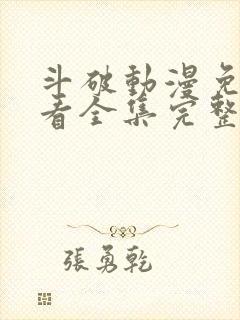 斗破動漫免
看全集完整
張勇乾